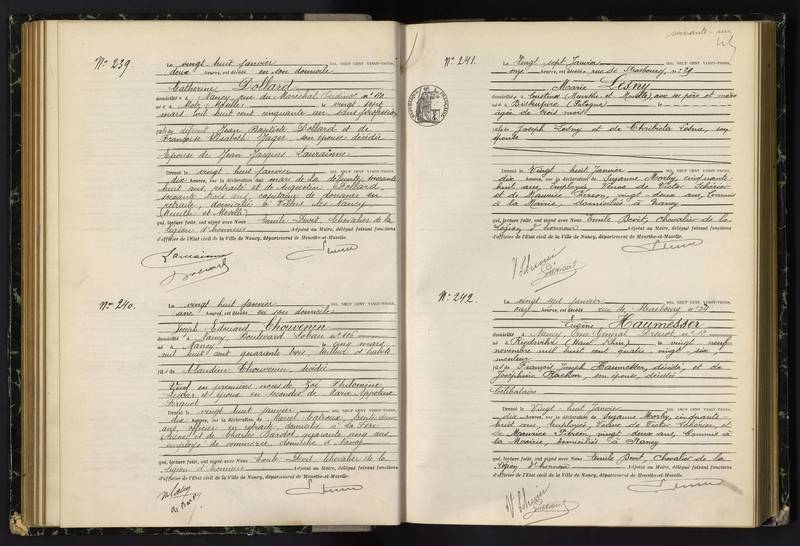 N° 239
Le vingt huit janvier MIL NEUF CENT VINGT-TROIS,
deux heures, est décédé en son domicile
Catherine Dollard
domiciliée à Nancy, rue du Maréchal Oudinot n° 120
née à Metz (Moselle) le vingt sept
mars mil huit cent cinquante un sans profession
fille de défunt Jean Baptiste Dollard et de
Françoise Elisabeth Jager, son épouse décédée
Epouse de Jean Jacques Lauraine
Dressé le vingt huit janvier MIL NEUF CENT VINGT-TROIS,
dix heures, sur la déclaration du mari de la défunte, soixante
huit ans, retraité et de Augustin Dollard,
soixante trois ans, capitaine de douanes en
retraite, domicilié à Villers les Nancy
(Meurthe et Moselle)
qui, lecture faite, ont signé avec Nous Emile Chevalier de la
Légion d'honneur Adjoint au Maire, délégué faisant fonctions
d'officier de l'Etat civil de la Ville de Nancy, département de Meurthe-et-Moselle.
N° 240.
Le vingt huit janvier MIL NEUF CENT VINGT-TROIS,
une heure, est décédé en son domicile
Joseph Edouard Chouvenin
domicilié à Nancy, Boulevard Lobau n° 106
né à Nancy le cinq mars
mil huit cent quarante trois, tailleur d'habits
fils de Claudine Chouvenin, décédée
Veuf en premières noces de Zoé Philomène
et époux en secondes de Marie Appoline
Dressé le vingt huit janvier MIL NEUF CENT VINGT-TROIS,
dix heures, sur la déclaration de Marcel trente deux
ans, officier en retraite, domicilié à La Fère
(Aisne) et de Charles Bardot, quarante cinq ans
employé de commerce, domicilié à Nancy
qui, lecture faite, ont signé avec Nous Emile Chevalier de la
Légion d'honneur Adjoint au Maire, délégué faisant fonctions
d'officier de l'Etat civil de la Ville de Nancy, département de Meurthe-et-Moselle.
soixante-un
N° 241.
Le Vingt sept Janvier MIL NEUF CENT VINGT-TROIS,
onze heures, est décédée rue de Strasbourg, n° 29
Marie Lesny
domiciliée à (Meurthe et Moselle), avec ses père et mère
née à (Pologne)
âgée de trois mois
fille de Joseph Lesny et de son
épouse
Dressé le Vingt huit Janvier MIL NEUF CENT VINGT-TROIS,
dix heures, sur la déclaration de Suzanne Morby, cinquante
huit ans, employée, Veuve de Victor
et de Maurice Pierson, vingt deux ans, Commis
à la Mairie, domiciliés à Nancy
qui, lecture faite, ont signé avec Nous Emile Chevalier de la
Légion d'honneur Adjoint au Maire, délégué faisant fonctions
d'officier de l'Etat civil de la Ville de Nancy, département de Meurthe-et-Moselle.
N° 242.
Le vingt sept janvier MIL NEUF CENT VINGT-TROIS,
heures, est décédé rue de Strasbourg n°
Eugène Haumesser
domicilié à Nancy, rue Général Drouot, n° 12
né à (Haut Rhin) le vingt neuf
novembre mil huit cent quatre vingt six,
fils de François Joseph Haumesser, décédé, et de
Joséphine son épouse, décédée
Célibataire
Dressé le Vingt huit Janvier MIL NEUF CENT VINGT-TROIS,
dix heures, sur la déclaration de Suzanne Morby, cinquante
huit ans, employée, Veuve de Victor et
de Maurice Pierson, vingt deux ans, Commis à
la Mairie, domiciliés à Nancy
qui, lecture faite, ont signé avec Nous Emile Chevalier de la
Légion d'honneur Adjoint au Maire, délégué faisant fonctions
d'officier de l'Etat civil de la Ville de Nancy, département de Meurthe-et-Moselle.